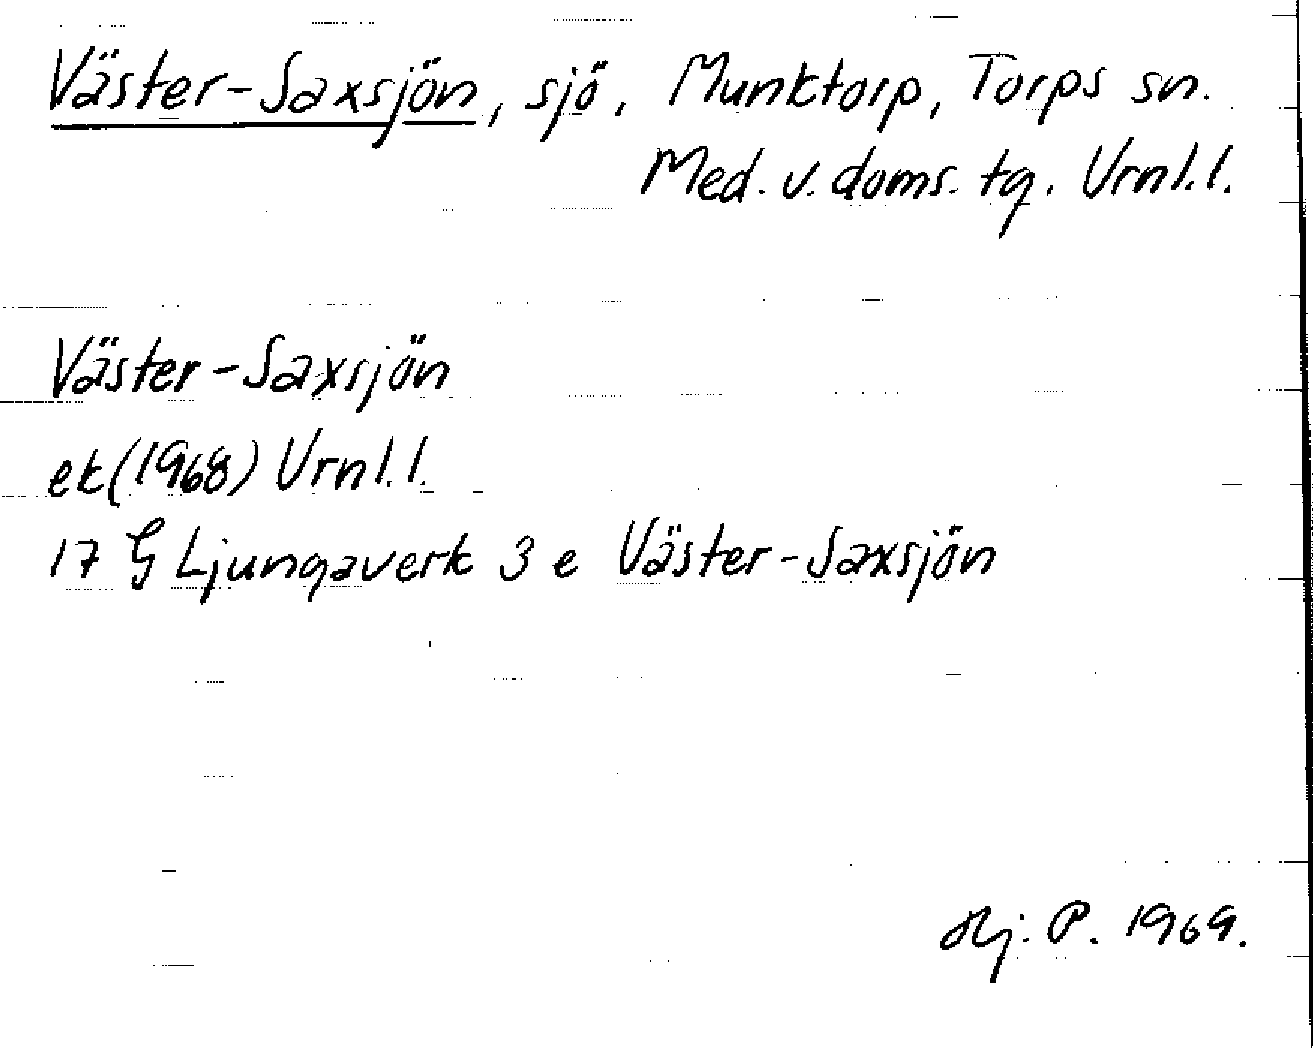 Väster-Saxsjön, sjö, Munktorp, Torps sn.
Med. v. doms. tg. Vrnl.l.
Väster-Saxsjön
ek(1968) Vrnl.l.
17 G Ljungaverk 3 e Väster-Saxsjön
Hj. P. 1969.